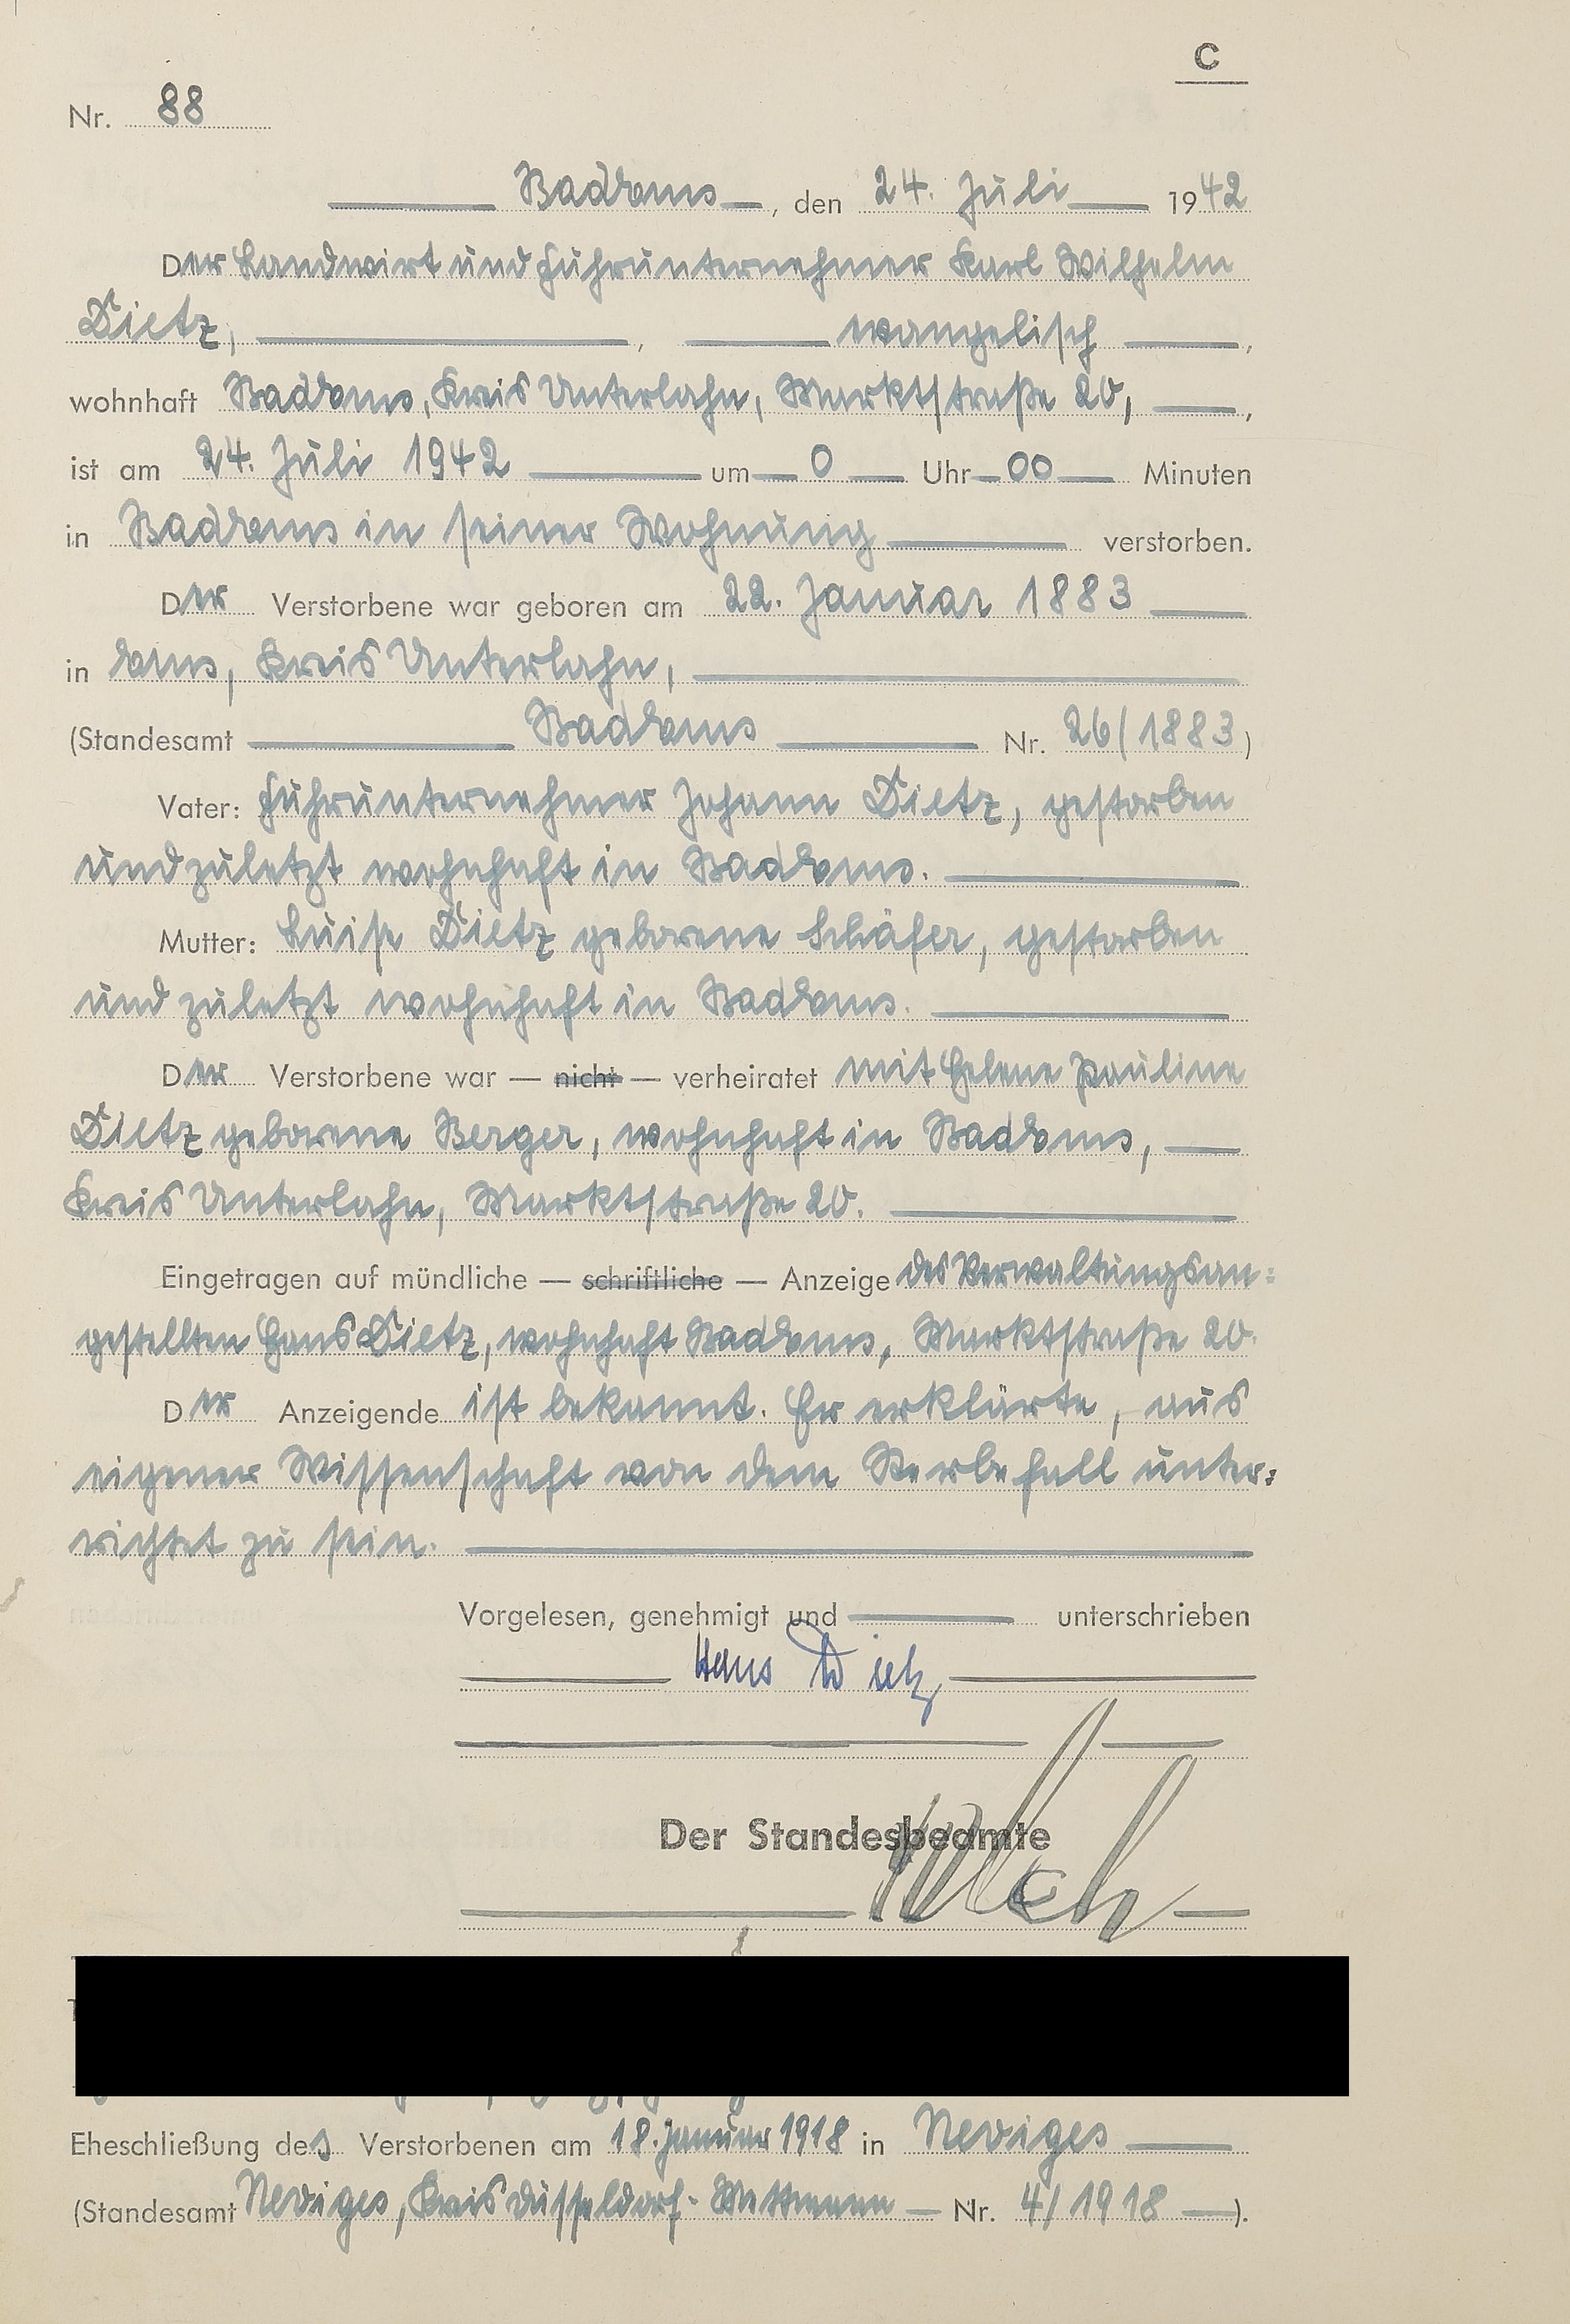 C
Nr. 88
Bad Ems, den 24. Juli 1942
Der Landwirt und Fuhrunternehmer Karl Wilhelm
Dietz, , evangelisch ,
wohnhaft Bad Ems, Kreis Unterlahn, Marktstraße 20, ,
ist am 24. Juli 1942 um 0 Uhr 00 Minuten
in Bad Ems in seiner Wohnung verstorben.
Der Verstorbene war geboren am 22. Januar 1883
in Ems, Kreis Unterlahn,
(Standesamt Bad Ems Nr. 26/1883)
Vater: Fuhrunternehmer Johann Dietz, gestorben
und zuletzt wohnhaft in Bad Ems.
Mutter: Luise Dietz geborene Schäfer, gestorben
und zuletzt wohnhaft in Bad Ems.
Der Verstorbene war — nicht — verheiratet mit Helene Pauline
Dietz geborene Berger, wohnhaft in Bad Ems,
Kreis Unterlahn, Marktstraße 20.
Eingetragen auf mündliche — schriftliche — Anzeige des Verwaltungsan=
gestellten Hans Dietz, wohnhaft Bad Ems, Marktstraße 20.
Der Anzeigende ist bekannt. Er erklärte, aus
eigener Wissenschaft von dem Sterbefall unter=
richtet zu sein.
Vorgelesen, genehmigt und unterschrieben
Hans Dietz
Der Standesbeamte
Eheschließung des Verstorbenen am 18. Januar 1918 in Neviges
(Standesamt Neviges, Kreis Düsseldorf-Mettmann — Nr. 4/1918 —).